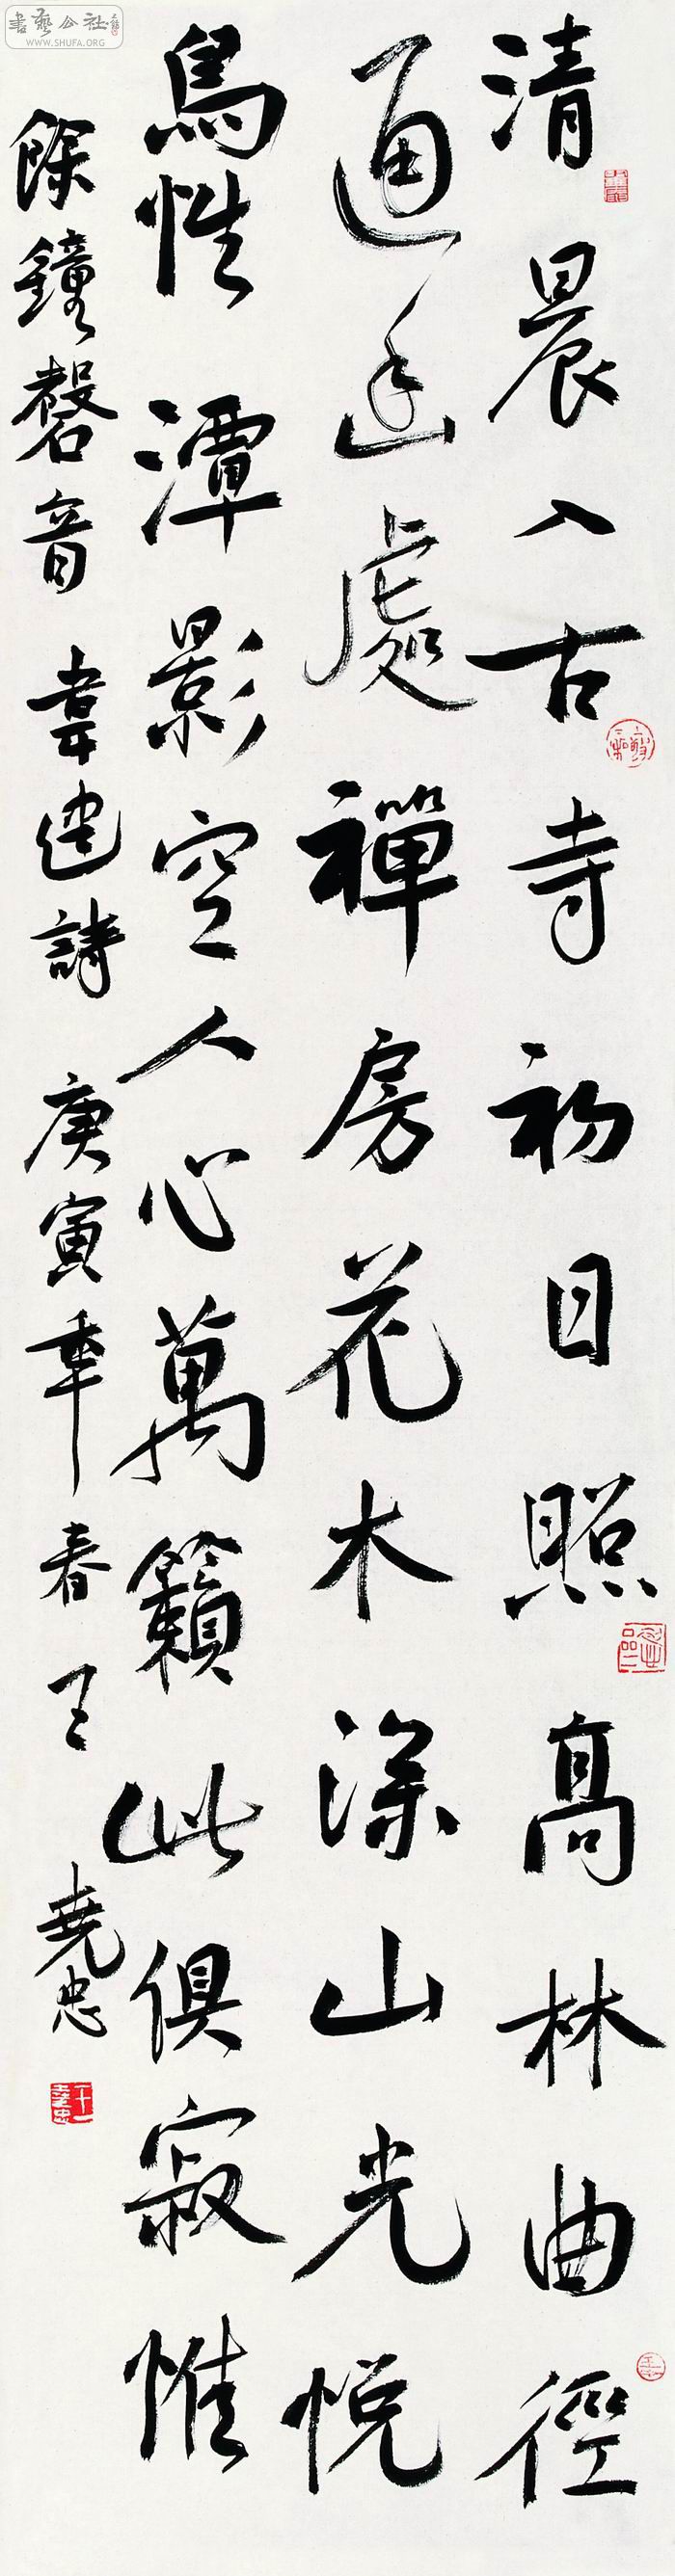 清晨入古寺初日照高林曲徑
通幽處禪房花木深山光悅
鳥性潭影空人心萬籟此俱寂惟
餘鐘磬音 韋建詩 庚寅年春 王堯忠
書藝公社
WWW.SHUFA.ORG